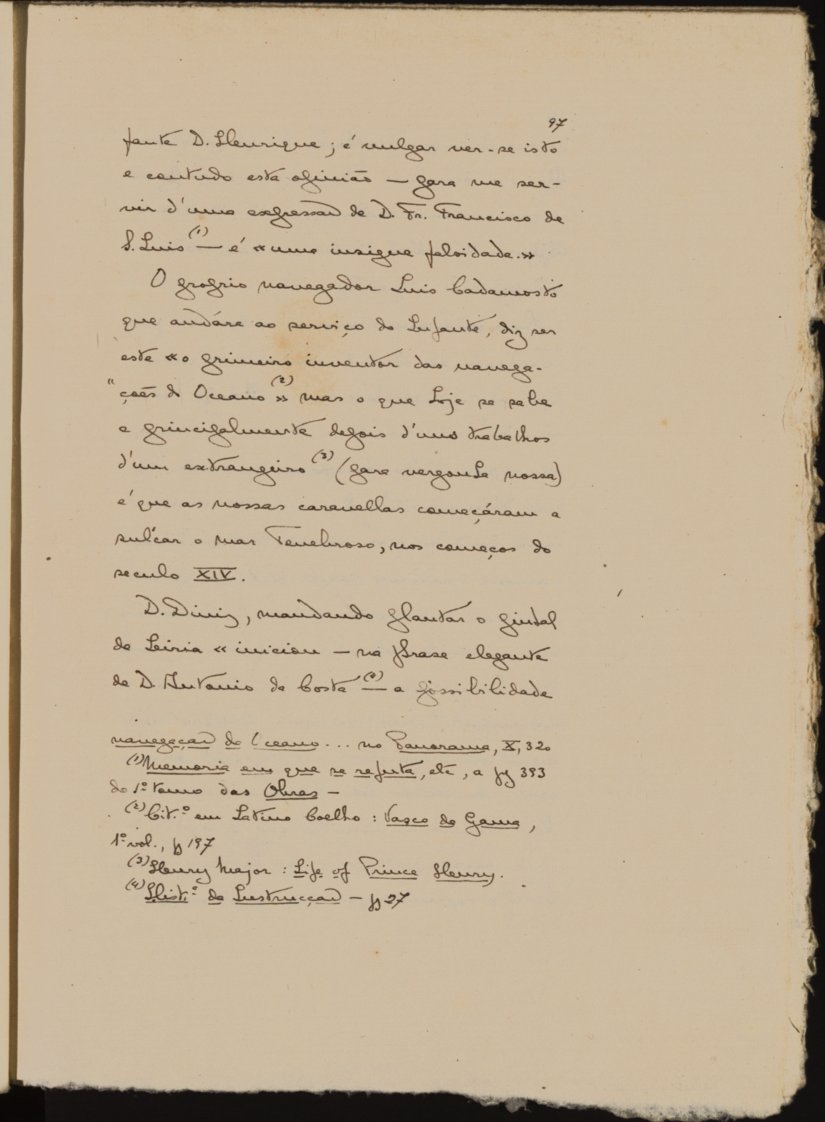 97
fante D. Henrique; é vulgar ver-se isto
e contudo esta opinião — para me ser-
vir d'uma expressão de D. Fr. Francisco de
S. Luis (1) — é «uma insigne falsidade.»
O proprio navegador Luis Cadamosto
que andára ao serviço do Infante, diz ser
este «o primeiro inventor das navega-
"ções do Oceano (2)» mas o que hoje se sabe
e principalmente depois d'uns trabalhos
d'um extrangeiro (3) (para vergonha nossa)
é que as nossas caravellas começáram a
sulcar o mar Tenebroso, nos começos do
seculo XIV.
D. Diniz, mandando plantar o pinhal
de Leiria «iniciou — na phrase elegante
de D. Antonio da Costa (4) — a possibilidade
navegação do Oceano... no Panorama, X, 320
(1) Memoria em que se refuta, etc, a pg 383
do 1º tomo das Obras –
(2) Cit.º em Latino Coelho: Vasco da Gama,
1º vol., pg 197
(3) Henry Major: Life of Prince Henry.
(4) Hist.ª da Instrucção – pg 27